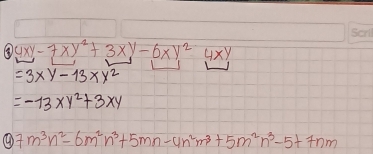 ③ 4xy - 7xy² + 3xy - 6xy² 4xy
= 3xy - 13xy²
= -13xy² + 3xy
④ 7m³n² - 6m²n³ + 5mn - 4n²m³ + 5m²n³ - 5 + 7nm